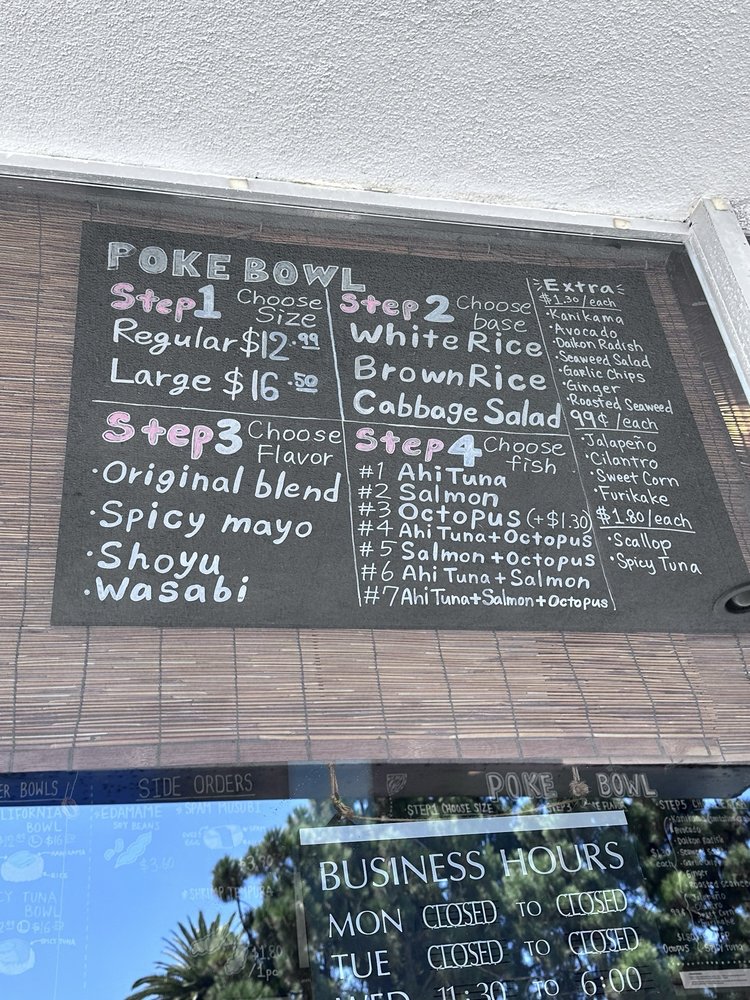 POKE BOWL
Step1 Choose Size
Regular $12.99
Large $16.50
Step2 Choose base
White Rice
Brown Rice
Cabbage Salad
Step3 Choose Flavor
·Original blend
·Spicy mayo
·Shoyu
·Wasabi
Step4 Choose fish
#1 Ahi Tuna
#2 Salmon
#3 Octopus (+$1.30)
#4 Ahi Tuna+Octopus
#5 Salmon+Octopus
#6 Ahi Tuna+Salmon
#7 Ahi Tuna+Salmon+Octopus
Extra
$1.30/each
·Kanikama
·Avocado
·Daikon Radish
·Seaweed Salad
·Garlic Chips
·Ginger
·Roasted Seaweed
99¢/each
·Jalapeño
·Cilantro
·Sweet Corn
·Furikake
$1.80/each
·Scallop
·Spicy Tuna
ER BOWLS
BOWL
TUNA
BOWL
SIDE ORDERS
EDAMAME
SOY BEANS
$3.60
SPAM MUSUBI
SHRIMP TEMPURA
POKE BOWL
STEP1 CHOOSE SIZE
BUSINESS HOURS
MON CLOSED TO CLOSED
TUE CLOSED TO CLOSED
WED 11:30 TO 6:00